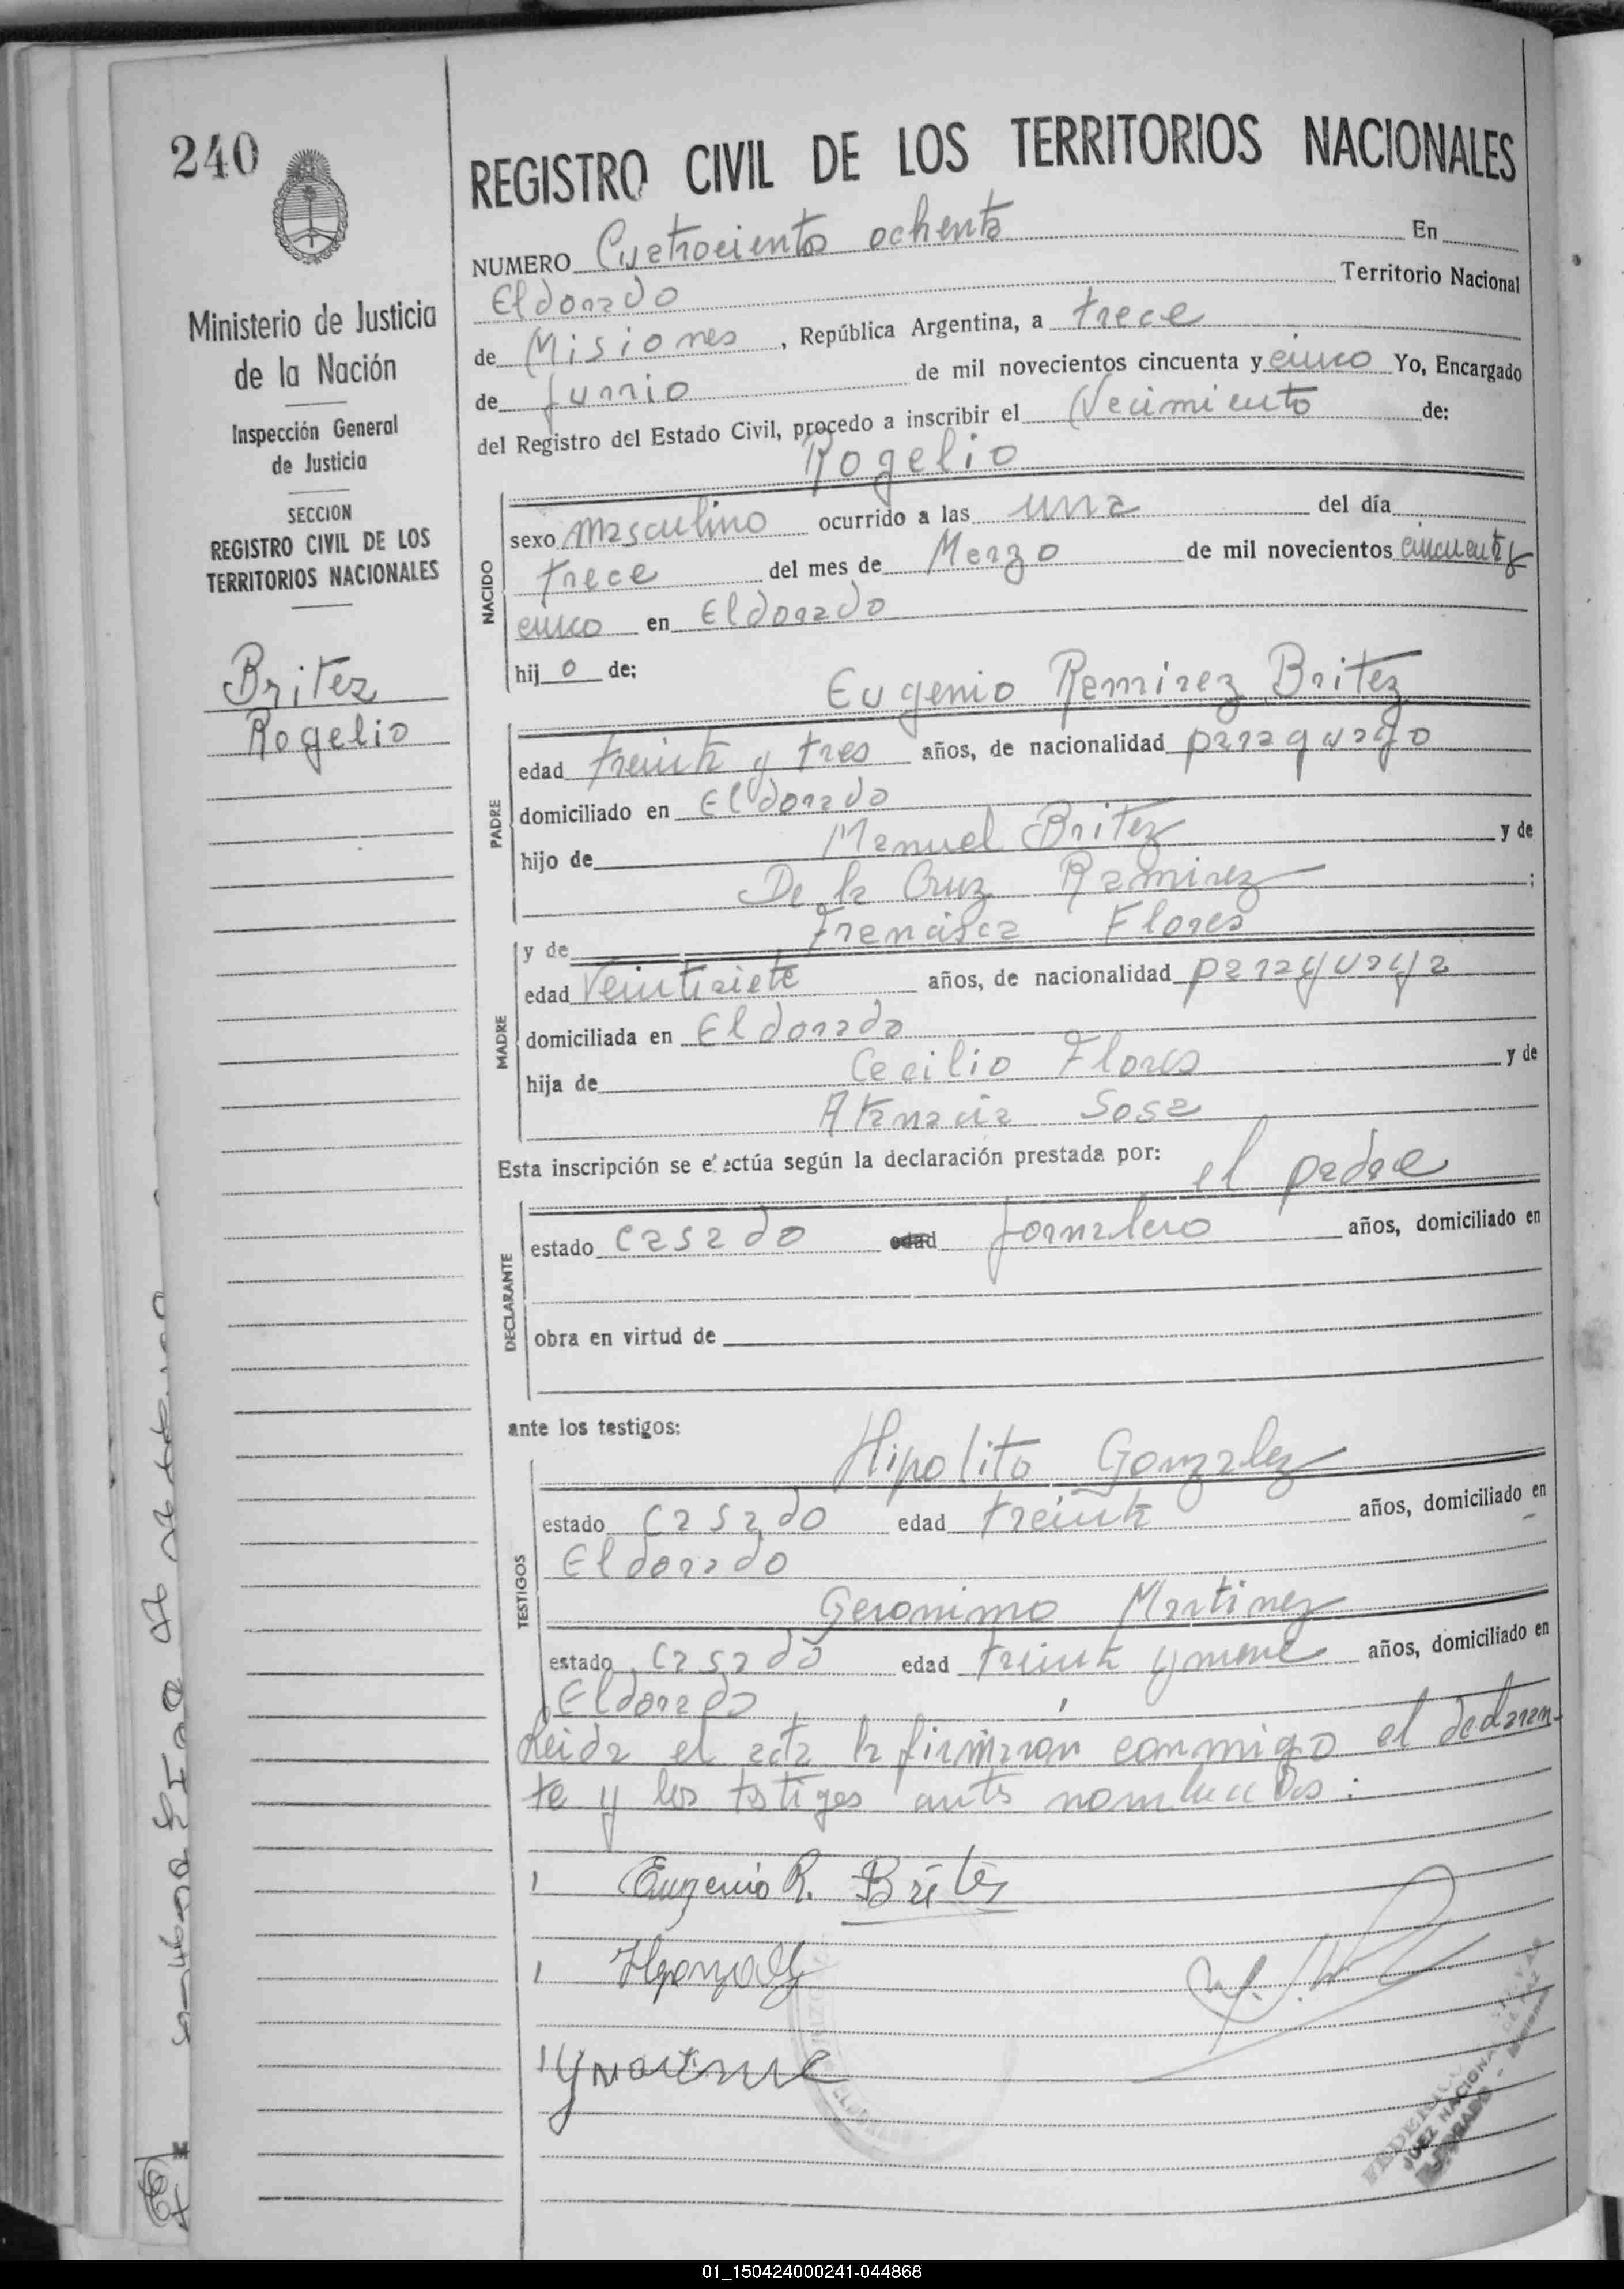 240
REGISTRO CIVIL DE LOS TERRITORIOS NACIONALES
Ministerio de Justicia
de la Nación
Inspección General
de Justicia
SECCION
REGISTRO CIVIL DE LOS
TERRITORIOS NACIONALES
Britez
Rogelio
NUMERO Cuatrocientos ochenta En
Eldorado Territorio Nacional
de Misiones, República Argentina, a trece
de Junio de mil novecientos cincuenta y cinco Yo, Encargado
del Registro del Estado Civil, procedo a inscribir el Nacimiento de:
Rogelio
NACIDO
sexo masculino ocurrido a las una del día
trece del mes de Marzo de mil novecientos cincuenta y
cinco en Eldorado
hijo de:
Eugenio Ramirez Britez
PADRE
edad treinta y tres años, de nacionalidad paraguayo
domiciliado en Eldorado
hijo de Manuel Britez y de
De la Cruz Ramirez ;
y de Francisca Flores
MADRE
edad Veintisiete años, de nacionalidad paraguaya
domiciliada en Eldorado
hija de Cecilio Flores y de
Atanacia Sosa
Esta inscripción se efectúa según la declaración prestada por: el padre
DECLARANTE
estado casado edad jornalero años, domiciliado en
obra en virtud de
ante los testigos:
Hipolito Gonzalez
TESTIGOS
estado casado edad treinta años, domiciliado en
Eldorado
Geronimo Martinez
estado casado edad treinta y nueve años, domiciliado en
Eldorado
Leida el acta la firmaron conmigo el declaran-
te y los testigos antes nombrados:
Eugenio R. Britez
JUEZ NACIONAL DE PAZ
ELDORADO - Misiones
01_150424000241-044868